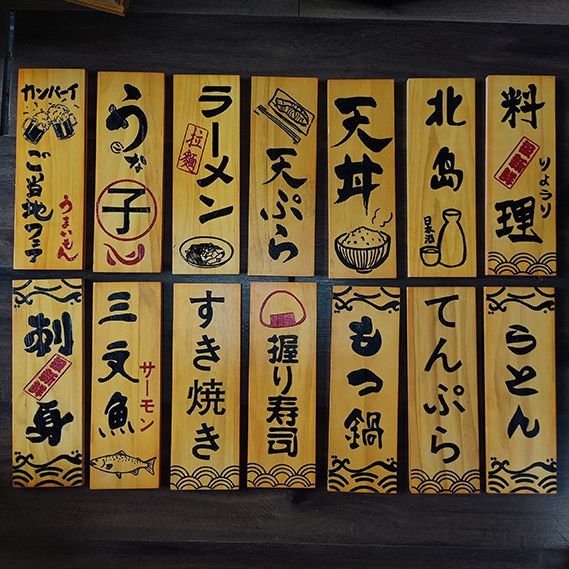 カンパーイ
ご当地フェア
うまいもん
うな
子
ラーメン
拉麺
天ぷら
天丼
北島
日本酒
料理
りょうり
刺身
三文魚
サーモン
すき焼き
握り寿司
もつ鍋
てんぷら
らとん